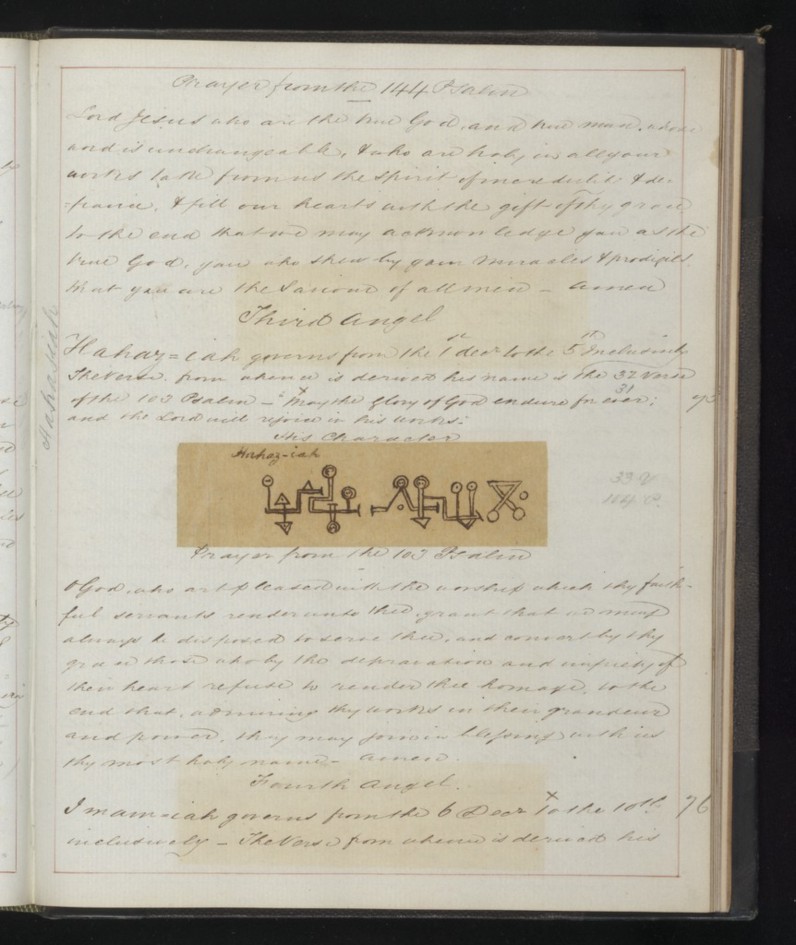 Prayer from the 144 Psalm
Lord Jesus who are the true God, and true man, whose
word is unchangeable, & who are holy in all your
works take from us the spirit of incredulity & des
=pair, & fill our hearts with the gift of thy grace
to the end that we may acknowledge you as the
true God, you who shew by your miracles & prodigies
that you are the Saviour of all men - amen
Third Angel
Hahaz=iah governs from the 1st decr to the 5th Inclusively
The Verse from whence is derived his name is the 32 Verse
31
of the 103 Psalm - X May the glory of God endure for ever;
and the Lord will rejoice in his works:
His Character
Hahaz-iah
33 V
104 P.
Prayer from the 103 Psalm
O God, who art pleased with the worship which thy faith-
ful servants render unto thee, grant that we may
always be disposed to serve thee, and convert by thy
grace those who by the depravation and impiety of
their heart refuse to render thee homage, to the
end that, admiring thy works in their grandeur
and power, they may join in blessing with us
thy most holy name - amen.
Fourth Angel.
Imam-iah governs from the 6 Decr X to the 10th 76
inclusively - The Verse from whence is derived his
Hahassiah